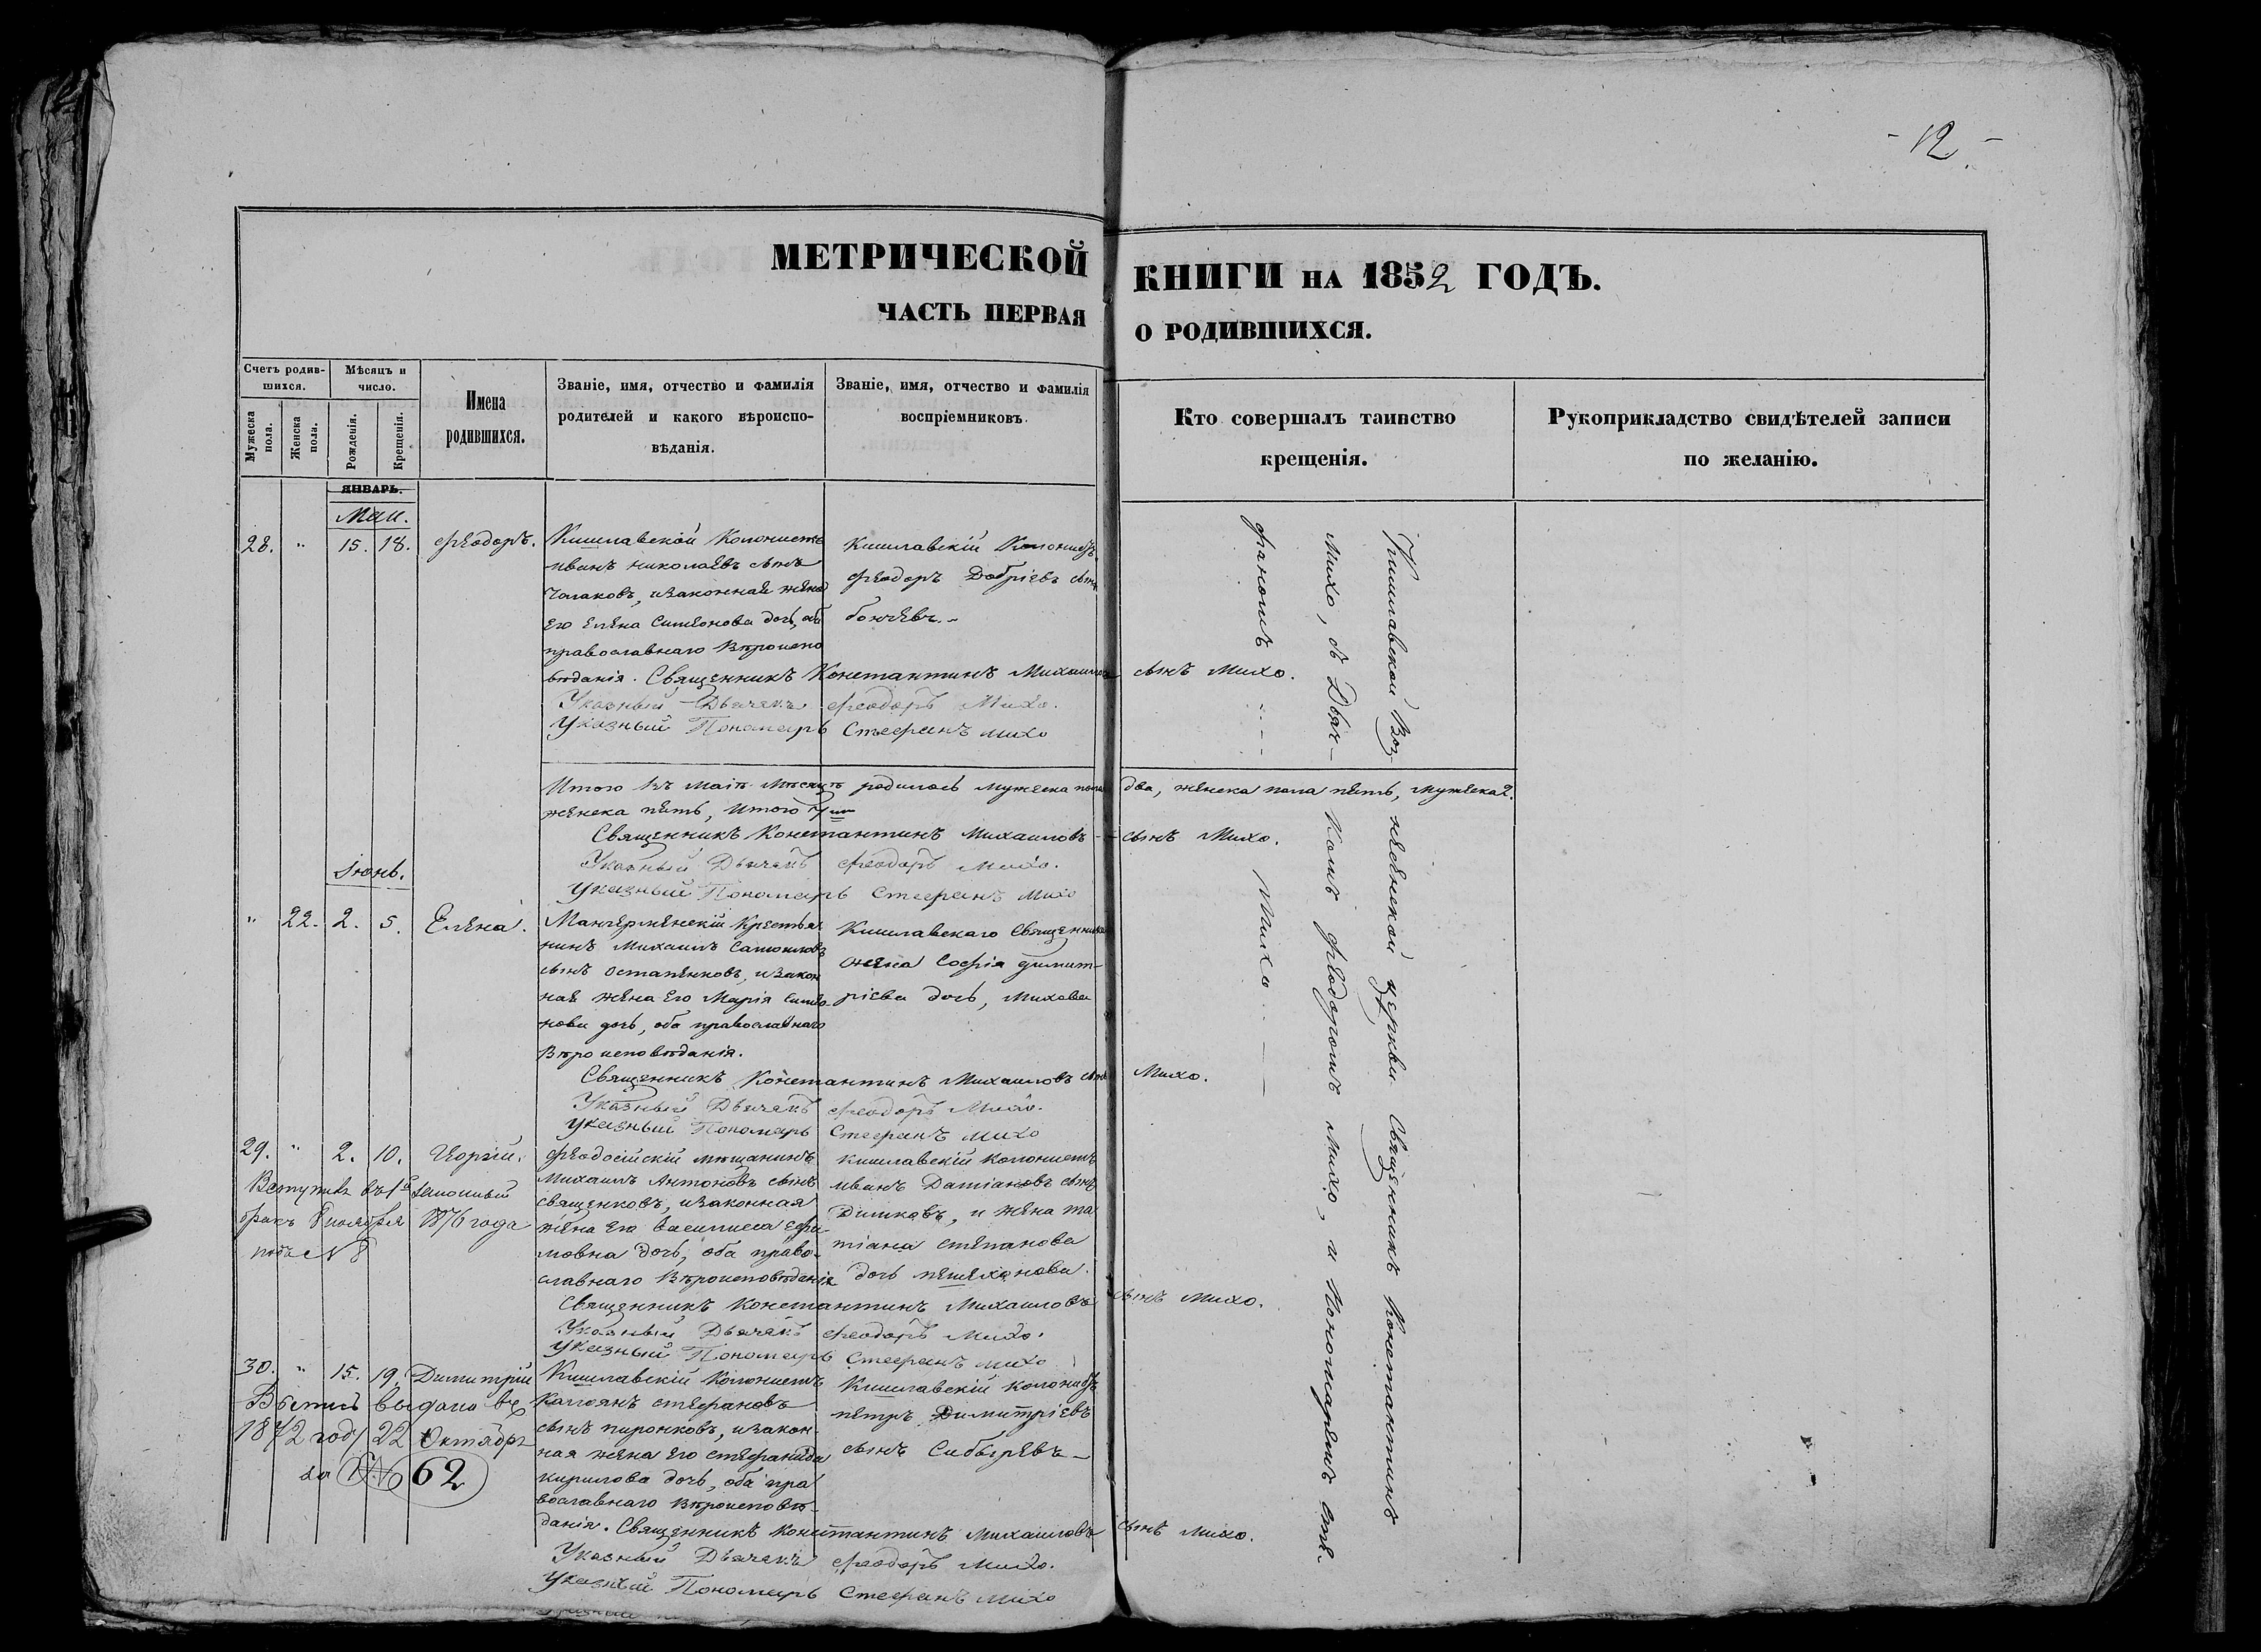 - 12. -
МЕТРИЧЕСКОЙ КНИГИ НА 1852 ГОДЪ.
ЧАСТЬ ПЕРВАЯ О РОДИВШИХСЯ.
Счетъ родив-
шихся.
Мужеска пола.
Женска пола.
Мѣсяцъ и
число.
Рожденія.
Крещенія.
Имена
родившихся.
Званіе, имя, отчество и фамилія
родителей и какого вѣроиспо-
вѣданія.
Званіе, имя, отчество и фамилія
воспріемниковъ.
Кто совершалъ таинство
крещенія.
Рукоприкладство свидѣтелей записи
по желанію.
ЯНВАРЬ.
Маи.
28. " 15. 18. Феодоръ.
Кишлавской Колонистъ
иванъ николаевъ сынъ
Чолаковъ, изаконная жена
его Елена Симеонова дочь, оба
православнаго Вѣроиспо
вѣданія. Священникъ Константинъ Михаиловъ сынъ Михо.
Указный Дьячекъ Феодоръ Михо.
Указный Пономарь Стефанъ Михо
Кишлавскій Колонистъ
Феодоръ Добріевъ сынъ
бончевъ.-
Итого въ Маіѣ Мѣсяцѣ родилось мужеска пола два, женска пола пять, мужеска 2.
женска пять, итого 7
Священникъ Константинъ Михаиловъ - сынъ Михо.
Указный Дьячекъ Феодоръ Михо.
Указный Пономарь Стефанъ Михо
Іюнь.
" 22. 2. 5. Елена.
крестья
нинъ Михаилъ Самоиловъ
сынъ остапенковъ, изакон
ная жена его Марія Симео-
нова дочь, оба православнаго
Вѣроисповѣданія.
Священникъ Константинъ Михаиловъ сынъ Михо.
Указный Дьячекъ Феодоръ Михо.
Указный Пономарь Стефанъ Михо
Кишлавскаго Священника
жена Софія димит-
ріева дочь, Михова
29. " 2. 10. Георгій.
Вступилъ въ 1й законный
бракъ 8 ноября 1876 года
подъ N 8
Феодосійскій мѣщанинъ
Михаилъ Антоновъ сынъ
священковъ, изаконная
жена его Василиса Ефи-
мовна дочь, оба право-
славнаго Вѣроисповѣданія
Священникъ Константинъ Михаиловъ сынъ Михо.
Указный Дьячекъ Феодоръ Михо.
Указный Пономарь Стефанъ Михо
кишлавскій колонистъ
иванъ Даміановъ сынъ
Димковъ, и жена та
тіана степанова
дочь пешехонова.
30. " 15. 19. Димитрій
Выпись выдана въ
1872 году 22 Октября
за № 62
Кишлавскій Колонистъ
Калоянъ стефановъ
сынъ пиронковъ, изакон
ная жена его стефанида
кирилова дочь, оба пра
вославнаго вѣроисповѣ-
данія. Священникъ Константинъ Михаиловъ сынъ Михо.
Указный Дьячекъ Феодоръ Михо.
Указный Пономарь Стефанъ Михо
Кишлавскій колонистъ
петръ Димитріевъ
сынъ Сибыревъ -
Кишлавской Воз- несенской церкви Священникъ Константинъ
Михо, съ Дьяч- комъ Феодоромъ Михо, и Пономаремъ Сте-
фаномъ Михо